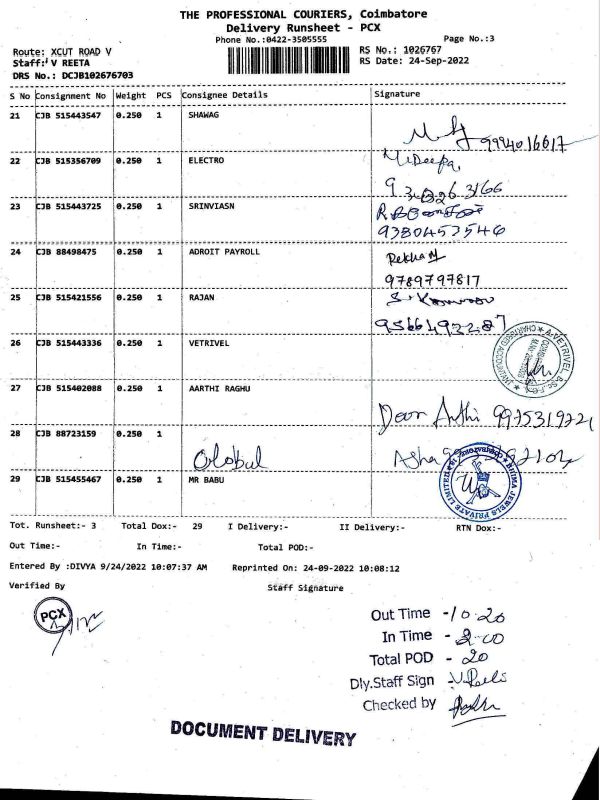 THE PROFESSIONAL COURIERS, Coimbatore
Delivery Runsheet - PCX
Phone No.:0422-3505555
Page No.:3
Route: XCUT ROAD V
RS No.: 1026767
Staff: V REETA
RS Date: 24-Sep-2022
DRS No.: DCJB102676703
S No Consignment No Weight PCS Consignee Details Signature
21 CJB 515443547 0.250 1 SHAWAG
9994016617
22 CJB 515356709 0.250 1 ELECTRO
M.Deepa
23 CJB 515443725 0.250 1 SRINVIASN
9380452546
24 CJB 88498475 0.250 1 ADROIT PAYROLL
Rekha M
9789797817
25 CJB 515421556 0.250 1 RAJAN
9566492287
26 CJB 515443336 0.250 1 VETRIVEL
A.VETRIVEL, B.Sc, F.C.A.
CHARTERED ACCOUNTANT
27 CJB 515402088 0.250 1 AARTHI RAGHU
28 CJB 88723159 0.250 1
Asha
29 CJB 515455467 0.250 1 MR BABU
BHIMA JEWELS PRIVATE LIMITED
Tot. Runsheet:- 3 Total Dox:- 29 I Delivery:- II Delivery:- RTN Dox:-
Out Time:- In Time:- Total POD:-
Entered By :DIVYA 9/24/2022 10:07:37 AM Reprinted On: 24-09-2022 10:08:12
Verified By Staff Signature
PCX
Out Time - 10.20
In Time - 2.00
Total POD - 20
Dly.Staff Sign -
Checked by
DOCUMENT DELIVERY